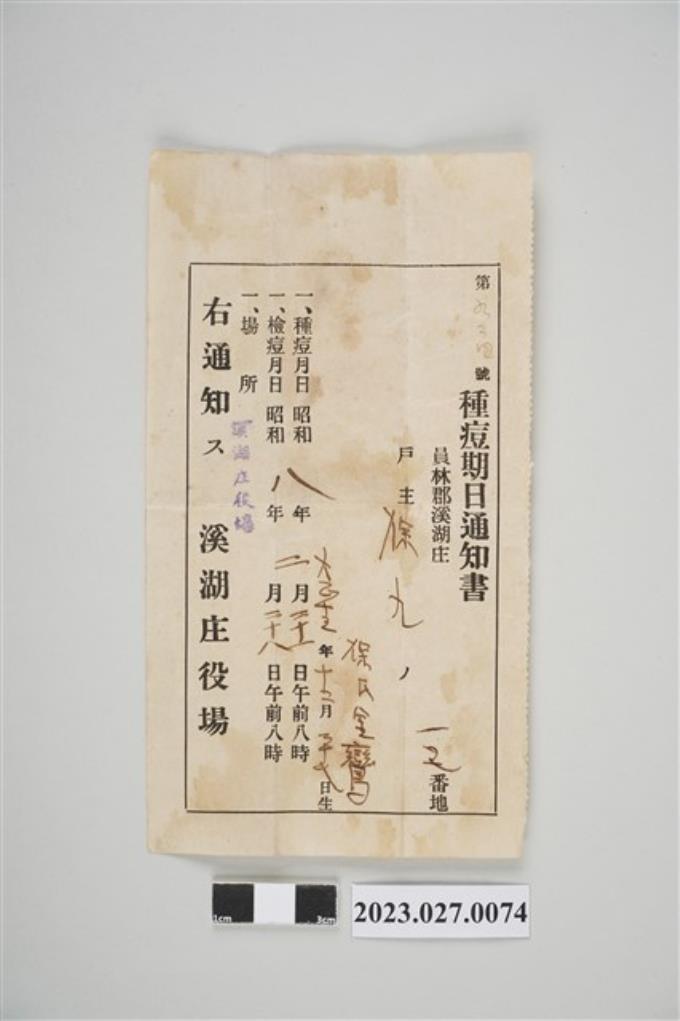 第九三四號
種痘期日通知書
員林郡溪湖庄
番地
戸主 九ノ
氏金鸞
年十二月日生
一、種痘月日 昭和八年二月二十一日午前八時
一、檢痘月日 昭和八年二月二十八日午前八時
一、場所 溪湖庄役場
右通知ス 溪湖庄役場
1cm 3cm
2023.027.0074